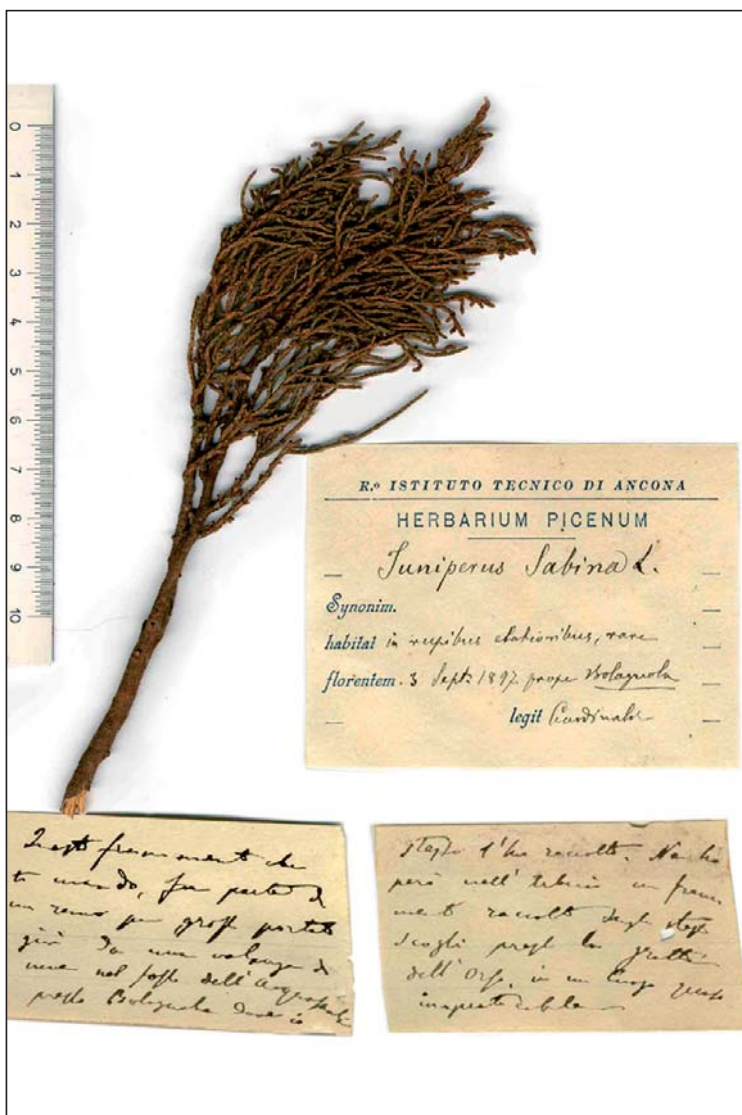 0
1
2
3
4
5
6
7
8
9
10
R.º ISTITUTO TECNICO DI ANCONA
HERBARIUM PICENUM
Juniperus Sabina L.
Synonim.
habitat in rupibus elatioribus, rare
florentem. 3 Sept. 1897 prope Bolognola
legit Cardinali
Questo frammento che
ti mando, fa parte di
un ramo più grosso portato
giù da una valanga di
neve nel fosso dell'Acquasanta
presso Bolognola dove io
stesso l'ho raccolto. Ne ho
però nell'erbario un fram
mento raccolto dagli stessi
scogli presso la grotta
dell'Orso, in un luogo quasi